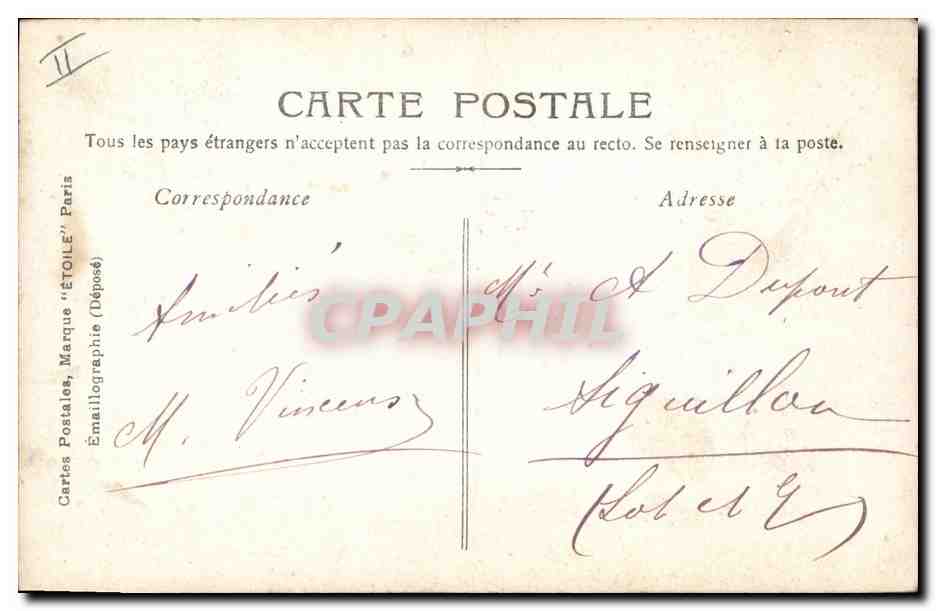 II
CARTE POSTALE
Tous les pays étrangers n'acceptent pas la correspondance au recto. Se renseigner à la poste.
Cartes Postales, Marque "ÉTOILE" Paris
Émaillographie (Déposé)
Correspondance
Amitiés
M. Vincens
Adresse
A Dupont
Aiguillon
(Lot et G)
CPAPHIL